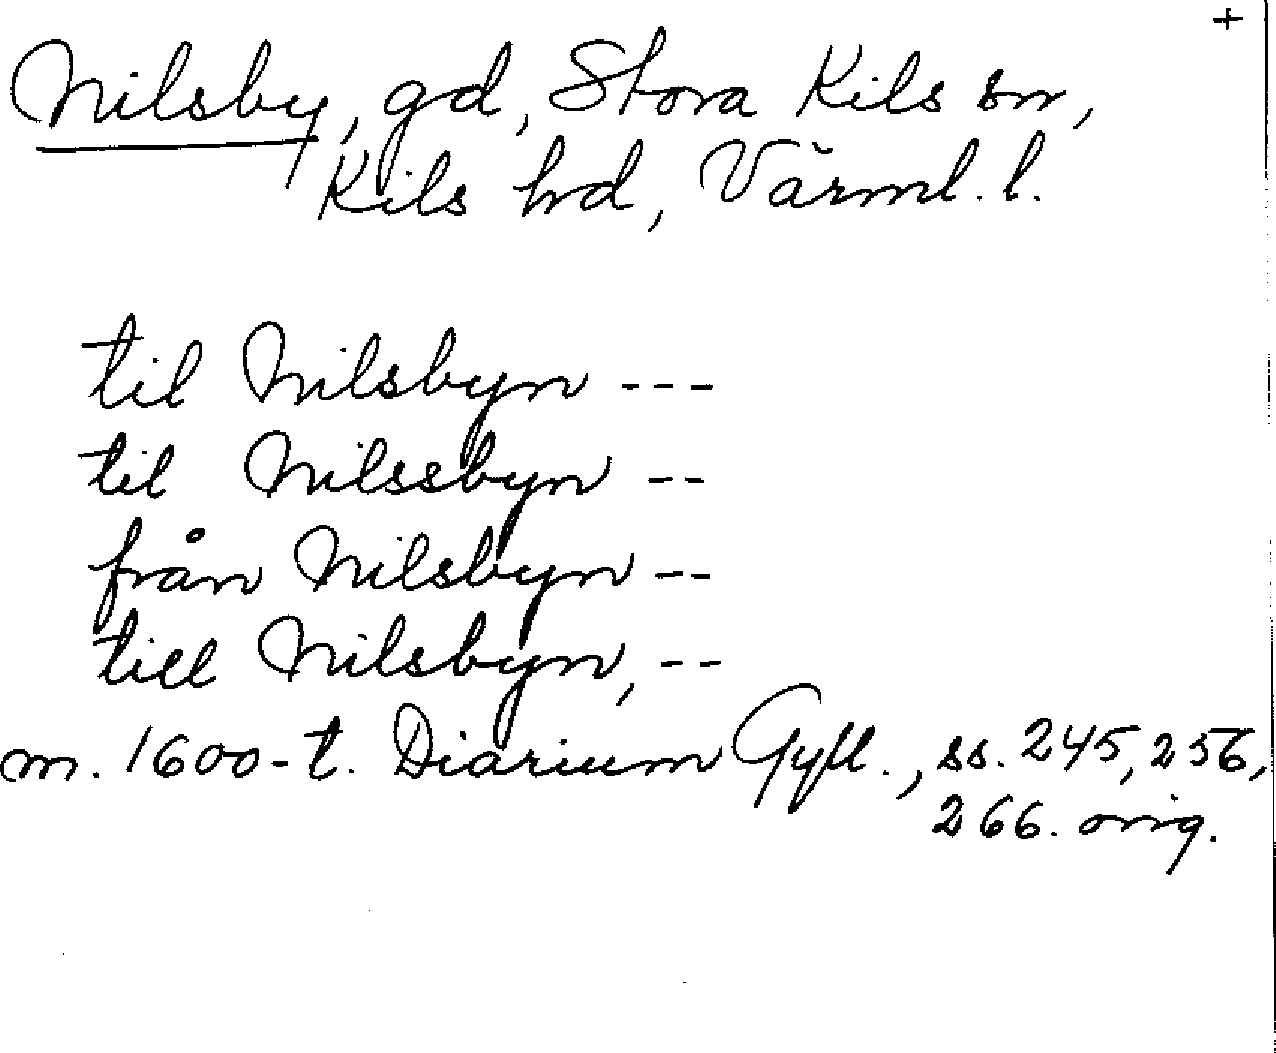 +
Nilsby, gd, Stora Kils sn,
Kils hd, Värml. l.
til Nilsbyn ---
til Nilssbyn --
från Nilsbyn --
till Nilsbyn, --
m. 1600-t. Diarium Gyll., ss. 245, 256,
266. orig.